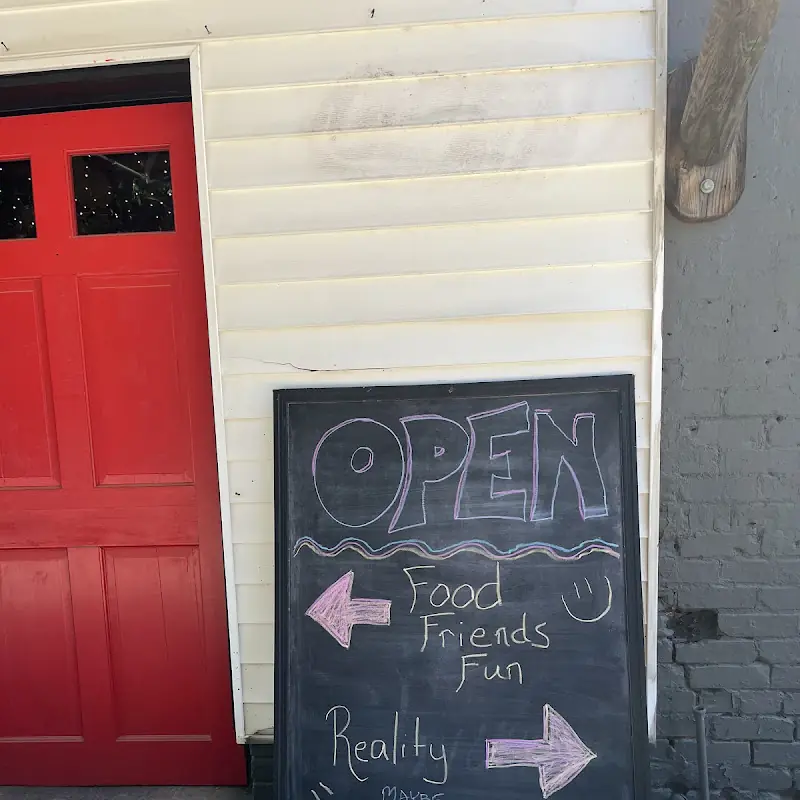 OPEN
Food
Friends
Fun
Reality
MAYBE